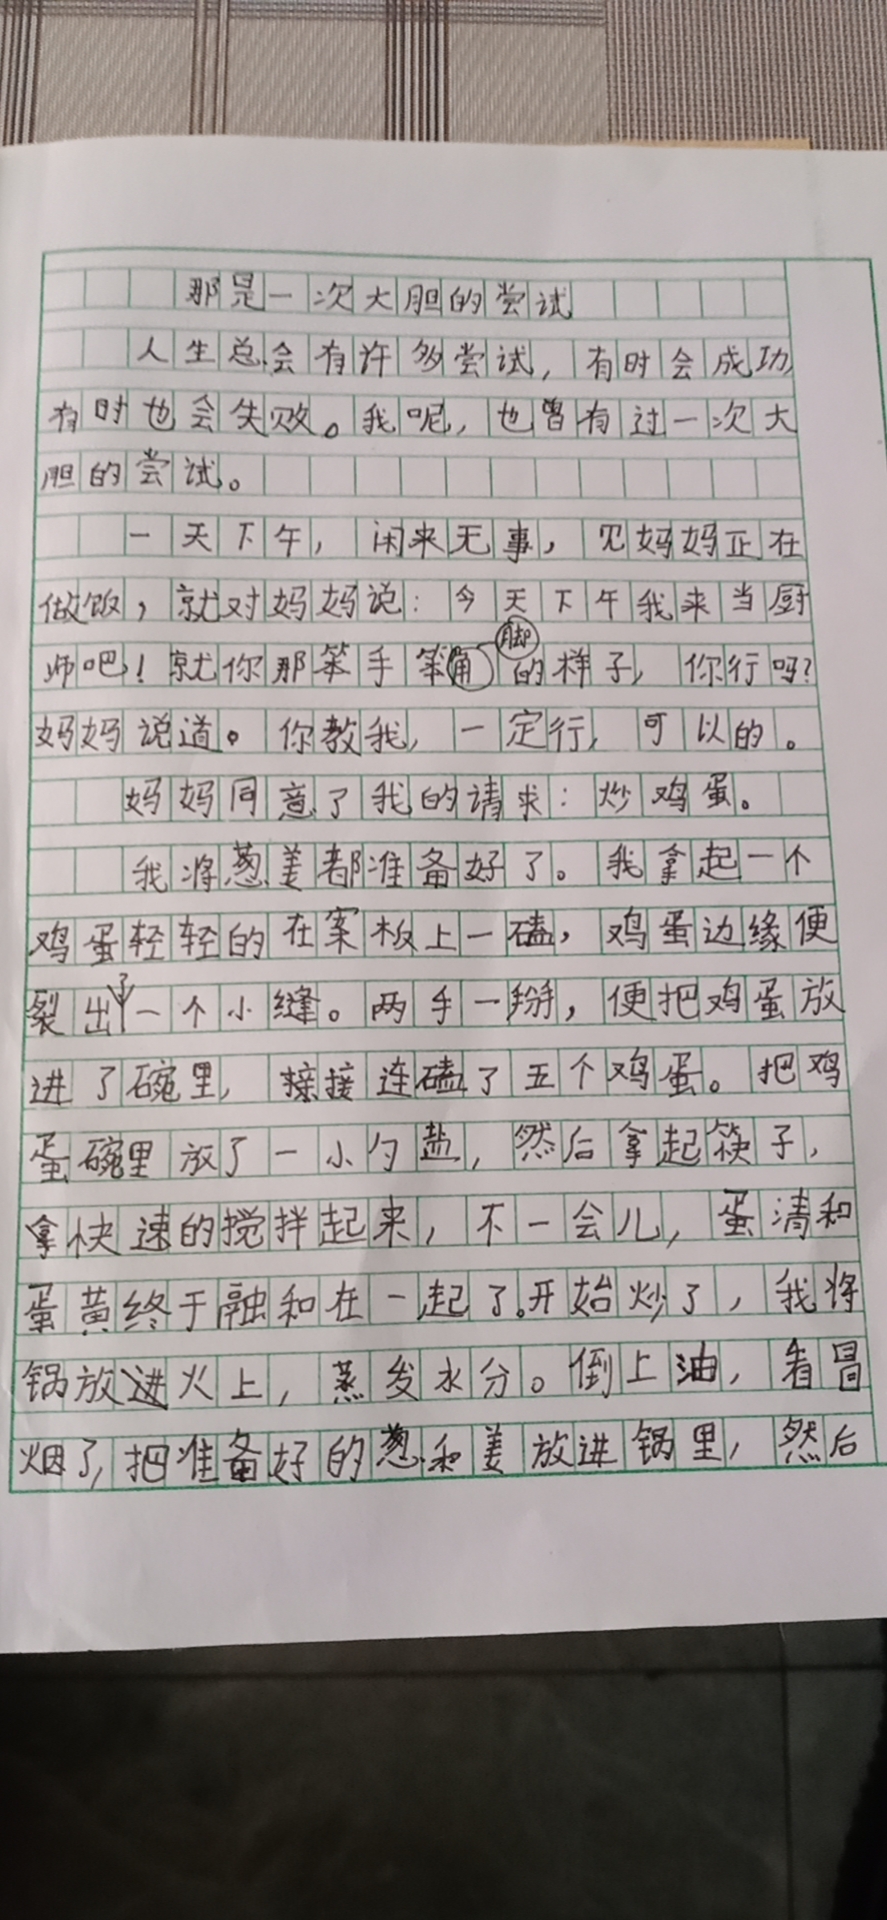 那是一次大胆的尝试
人生总会有许多尝试，有时会成功
有时也会失败。我呢，也曾有过一次大
胆的尝试。
一天下午，闲来无事，见妈妈正在
做饭，就对妈妈说：今天下午我来当厨
师吧！就你那笨手笨脚的样子，你行吗？
妈妈说道。你教我，一定行，可以的。
妈妈同意了我的请求：炒鸡蛋。
我将葱姜都准备好了。我拿起一个
鸡蛋轻轻的在案板上一磕，鸡蛋边缘便
裂出了一个小缝。两手一掰，便把鸡蛋放
进了碗里，接接连磕了五个鸡蛋。把鸡
蛋碗里放了一小勺盐，然后拿起筷子，
拿快速的搅拌起来，不一会儿，蛋清和
蛋黄终于融和在一起了。开始炒了，我将
锅放进火上，蒸发水分。倒上油，看冒
烟了，把准备好的葱和姜放进锅里，然后